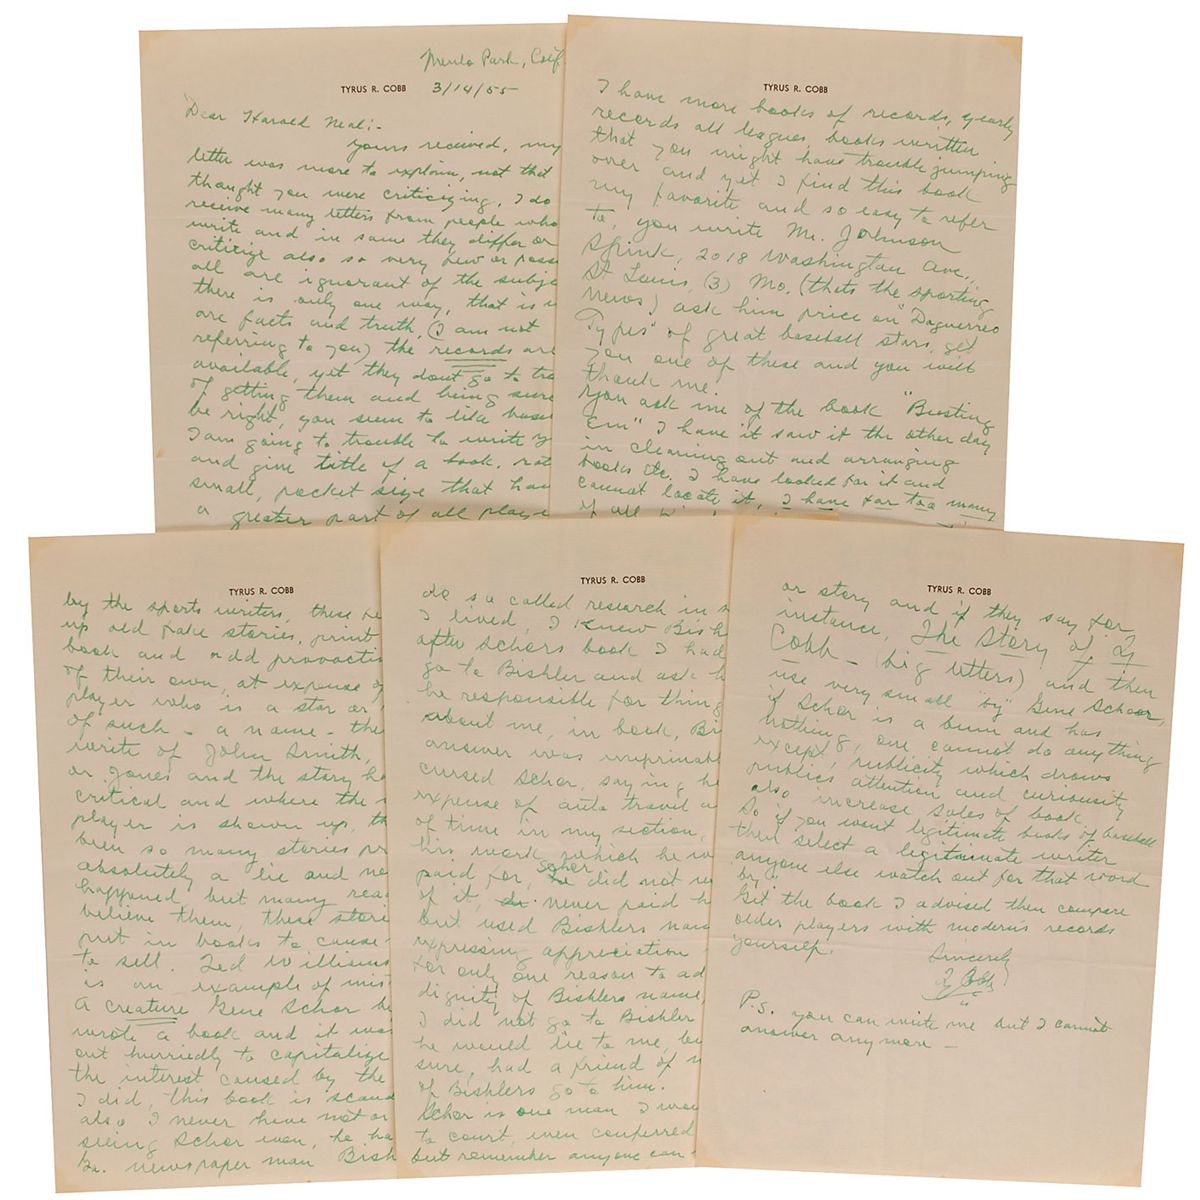 Menlo Park, Calif
TYRUS R. COBB 3/14/55
Dear Harold Neal:-
yours received, my
letter was more to explain, not that
thought you were criticizing, I do
receive many letters from people who
write and in some they differ or
criticize also so very few or poss
all are ignorant of the subje
there is only one way, that is
are facts and truth, (I am not
referring to you) the records are
available, yet they dont go to tro
of getting them and being sure
be right, you seem to like base
I am going to trouble to write y
and give title of a book, not
small, pocket size that has
a greater part of all playe
TYRUS R. COBB
I have more books of records, yearly
records all leagues, books written
that you might have trouble jumping
over and yet I find this book
my favorite and so easy to refer
to, you write Mr. Johnson
Spink, 2018 Washington Ave.,
St Louis, (3) Mo. (thats the sporting
news) ask him price on "Daguerreo
Types" of great baseball stars, get
you one of these and you will
thank me.
You ask me of the book "Busting
Em" I have it saw it the other day
in cleaning out and arranging
books etc. I have looked for it and
cannot locate it, I have far too many
of all
TYRUS R. COBB
by the sports writers, these
up old fake stories, print
book and add provocti
of their own, at expense of
player who is a star or
of such - a name - the
write of John Smith,
or Jones and the story he
critical and where the
player is shown up, th
been so many stories pr
absolutely a lie and ne
happened but many rea
believe them, these store
put in books to cause
to sell. Ted Williams
is an example of mis
A creature Gene Schor he
wrote a book and it was
out hurriedly to capitalize
the interest caused by the
I did, this book is scand
also I never have not or
seeing Schor even, he ha
Ga. newspaper man Bish
TYRUS R. COBB
do so called research in s
I lived, I knew Bish
after Schors book I had
go to Bishler and ask h
he responsible for thing
about me, in book, Bi
answer was unprintab
cursed Schor, saying he
expense of auto travel a
of time in my section,
his work which he w
paid for, Schor did not
of it, never paid h
but used Bishlers nam
expressing appreciation
for only one reason to ad
dignity of Bishlers name,
I did not go to Bishler
he would lie to me, bu
sure, had a friend of m
of Bishlers go to him.
Schor is one man I wou
to court, even conferred
but remember anyone can
TYRUS R. COBB
or story and if they say for
instance, The Story of Ty
Cobb - (big letters) and then
use very small by" Gene Schoor,
if Schor is a bum and has
nothing, one cannot do anything
except, publicity which draws
publics attention and curiousity
also increase sales of book.
So if you want legitimate books of baseball
then select a legitimate writer
anyone else watch out for that word
by"
Get the book I advised then compare
older players with moderns records
yourself.
Sincerely
Ty Cobb
P.S. you can write me but I cannot
answer anymore -